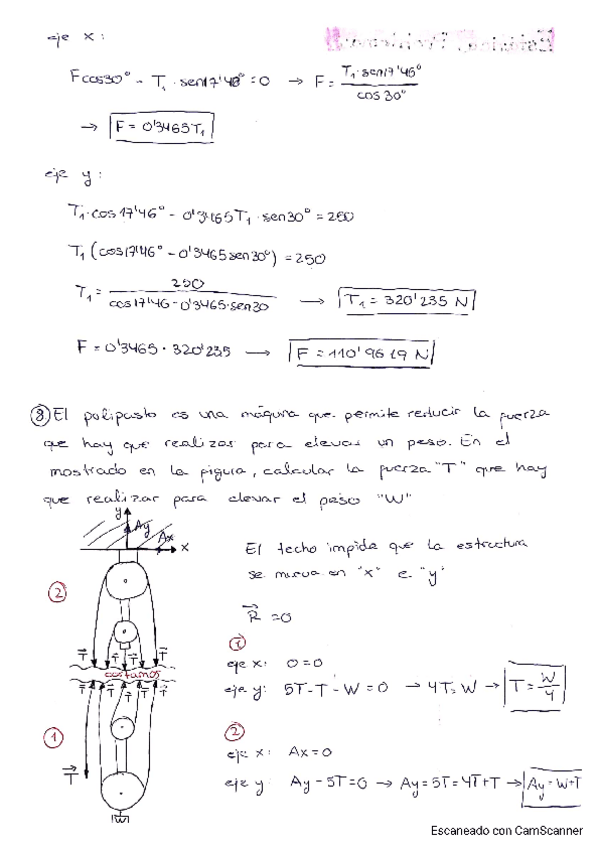 eje x:
Fcos30° - T₁ · sen17'46° = 0 → F = T₁·sen17'46° / cos 30°
→ F = 0'3465T₁
eje y:
T₁·cos17'46° - 0'3465T₁ · sen30° = 250
T₁ (cos17'46° - 0'3465sen30°) = 250
T₁ = 250 / cos17'46 - 0'3465·sen30 → T₁ = 320'235 N
F = 0'3465 · 320'235 → F = 110'9619 N
8) El polipasto es una máquina que permite reducir la fuerza
que hay que realizar para elevar un peso. En el
mostrado en la figura, calcular la fuerza "T" que hay
que realizar para elevar el peso "W"
y
Ay
Ax
x
El techo impide que la estructura
se mueva en "x" e "y"
R⃗ = 0
2
T⃗ T⃗ T⃗ T⃗ T⃗
cortamos
T⃗ T⃗ T⃗ T⃗ T⃗
1
eje x: 0=0
eje y: 5T - T - W = 0 → 4T = W → T = W/4
1
T⃗
W
2
eje x: Ax = 0
eje y: Ay - 5T = 0 → Ay = 5T = 4T + T → Ay = W+T
Escaneado con CamScanner